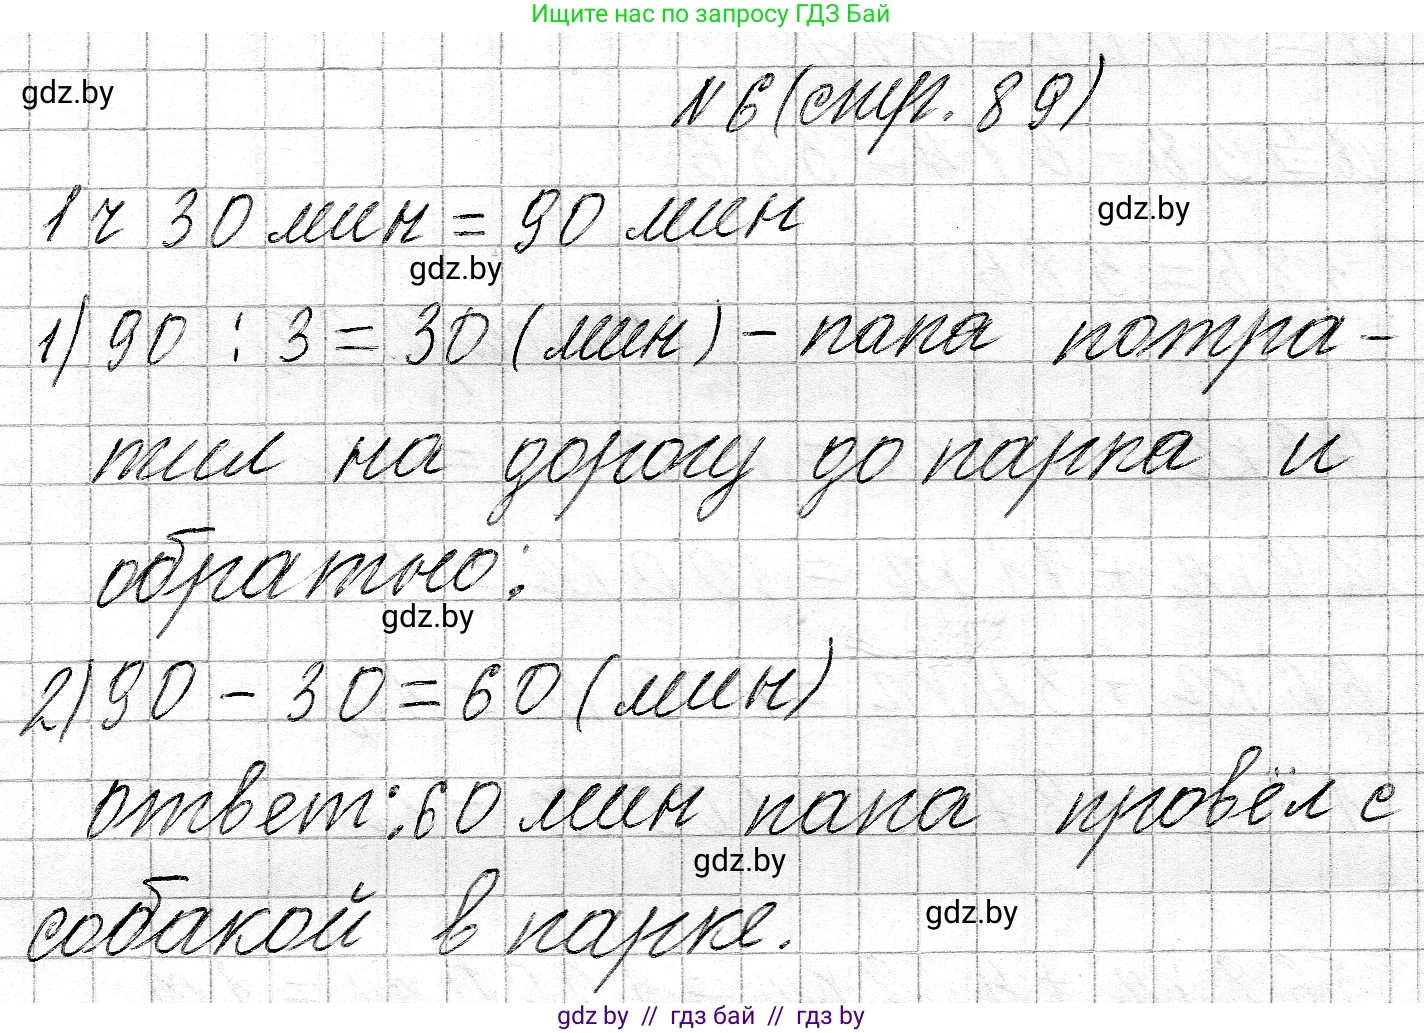 Ищите нас по запросу ГДЗ Бай
gdz.by
№6 (стр. 89)
1 ч 30 мин = 90 мин
gdz.by
gdz.by
1) 90 : 3 = 30 (мин) - папа потра-
тил на дорогу до парка и
обратно;
gdz.by
2) 90 - 30 = 60 (мин)
ответ: 60 мин папа провёл с
gdz.by
собакой в парке.
gdz.by
gdz by // гдз бай // гдз by